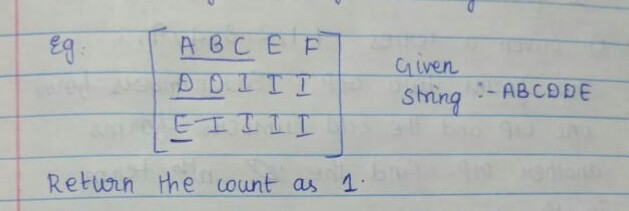 Eg:
A B C E F
D D I I I
E I I I I
Given
string :- ABCDDE
Return the count as 1.